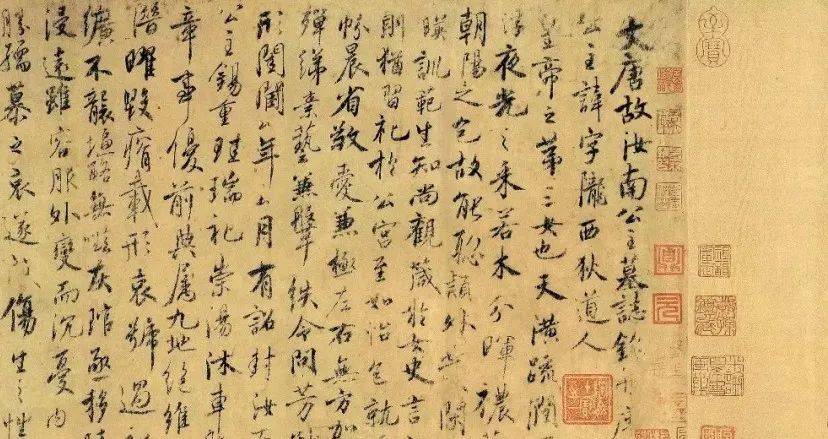 大唐故汝南公主墓誌銘并序
公主諱字隴西狄道人
皇帝之第三女也天潢疏潤
浮夜光之采若木分暉穠
朝陽之色故能聡穎外發閑
暎訓範生知尚觀箴於女史言
則猶習礼於公宮至如怡色就
帉晨省敬愛兼極左右無方加
殫綈素藝兼鞶紩令問芳
形閨閫年月有詔封汝南
公主錫重珪瑞礼崇湯沐車
章事優前典屬九地絕維
潛曜毀瘠載形哀號過
纊不襲塩酪無嗞灰琯亟移
浸遠雖容服外變而沉憂內
勝孺慕之哀遂成傷生之性